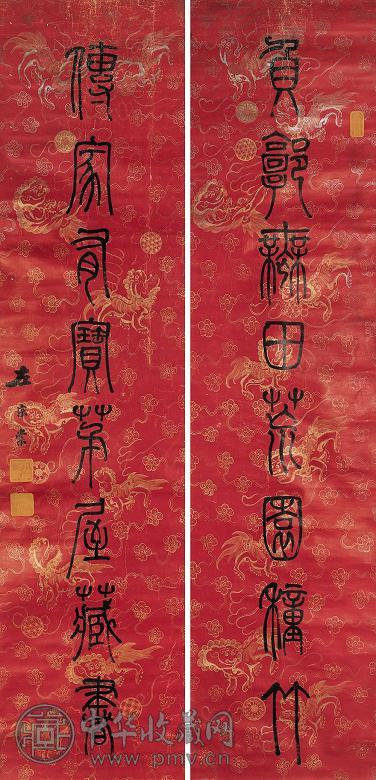 負郭無田荒園種竹
傳家有寶茅屋藏書
左宗棠
中华收藏网
www.pmv.cn